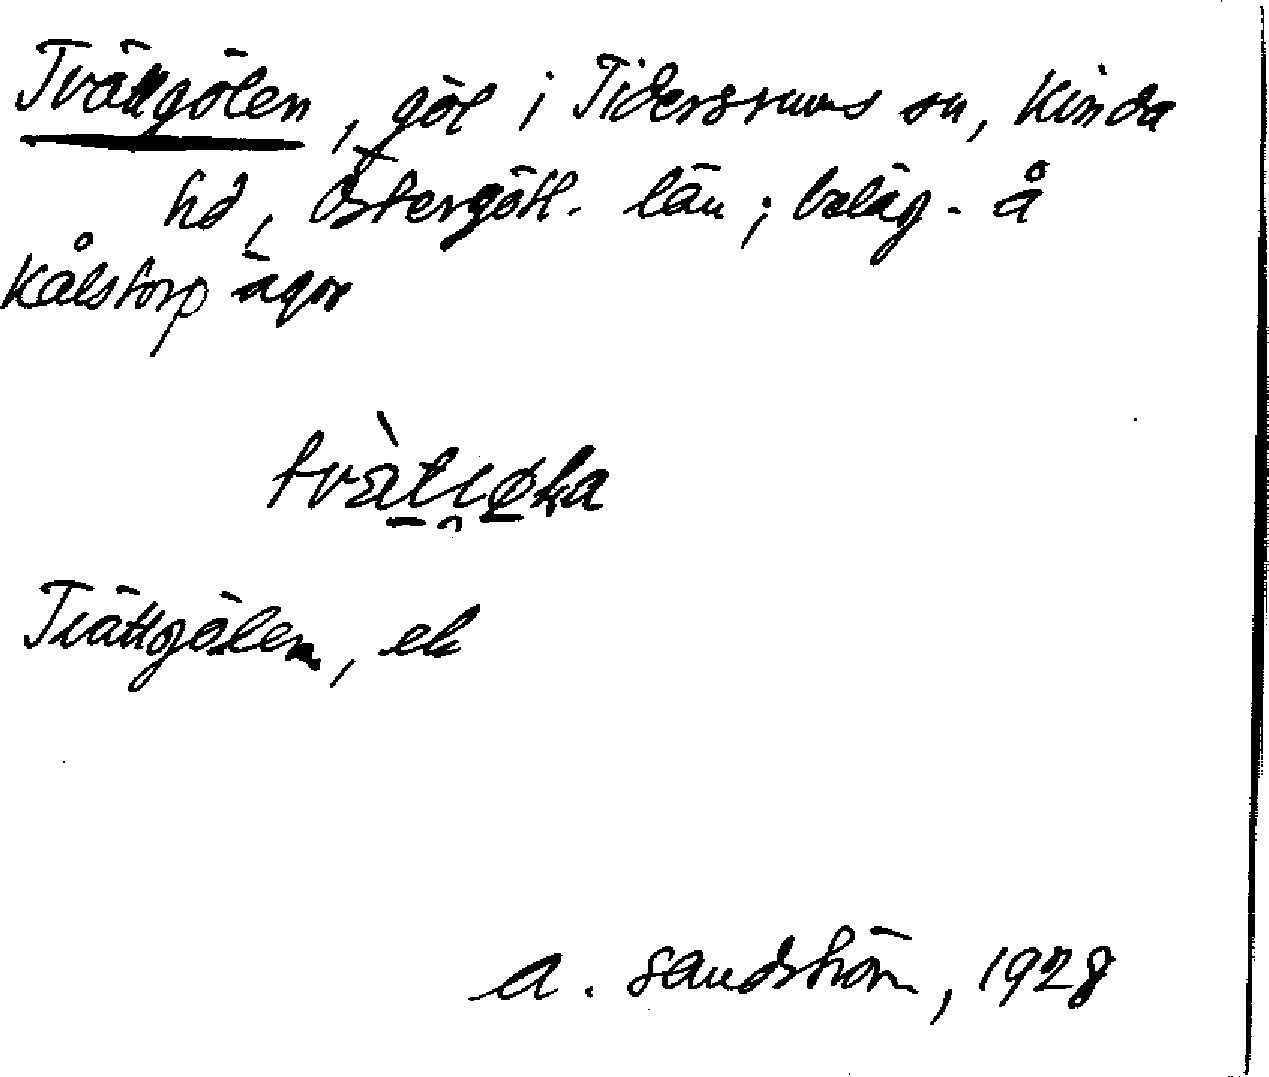 Tvättgölen, göl i Tidersrums sn, Kinda
hd, Östergötl. län; beläg. å
Kålstorp ägor
Tvättgölen, ek
A. Sandström, 1928